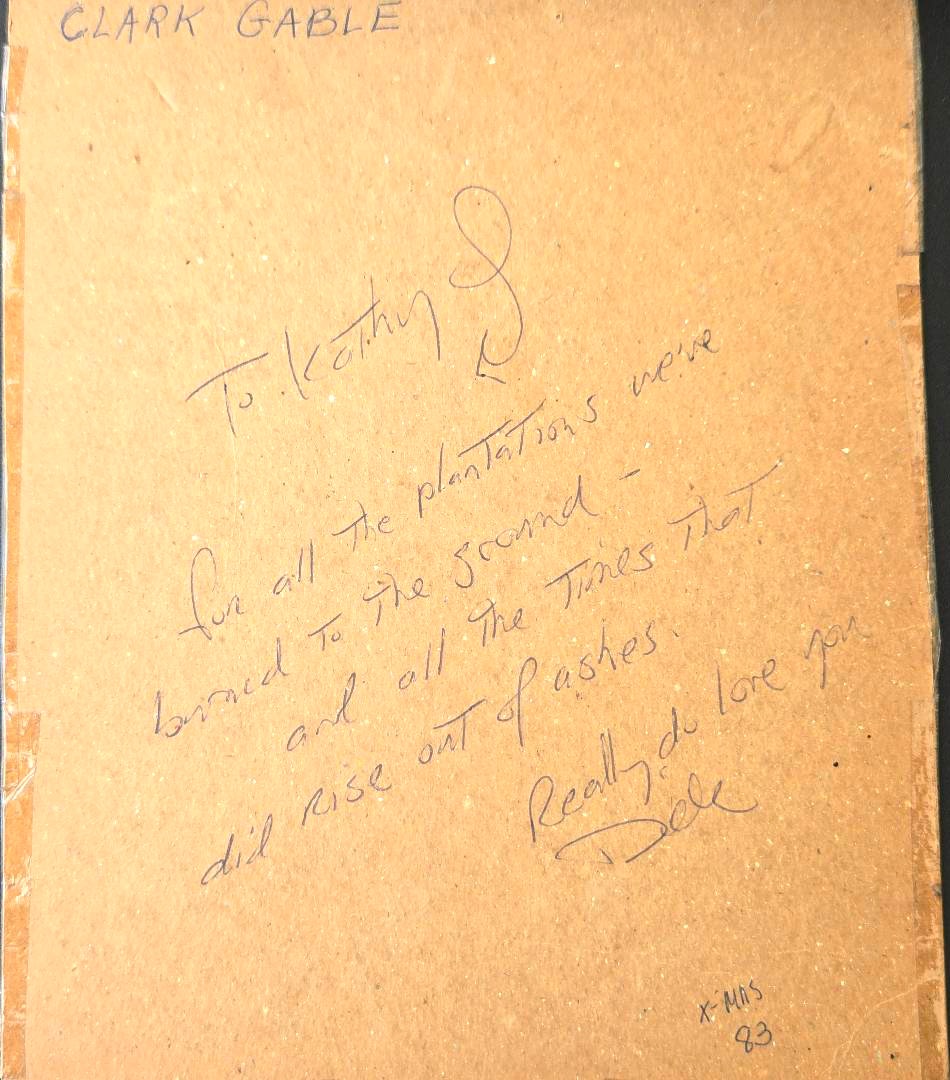 CLARK GABLE
To Kathy
for all the plantations we've
burned to the ground -
and all the times that
did rise out of ashes.
Really do love you
X-MAS
83